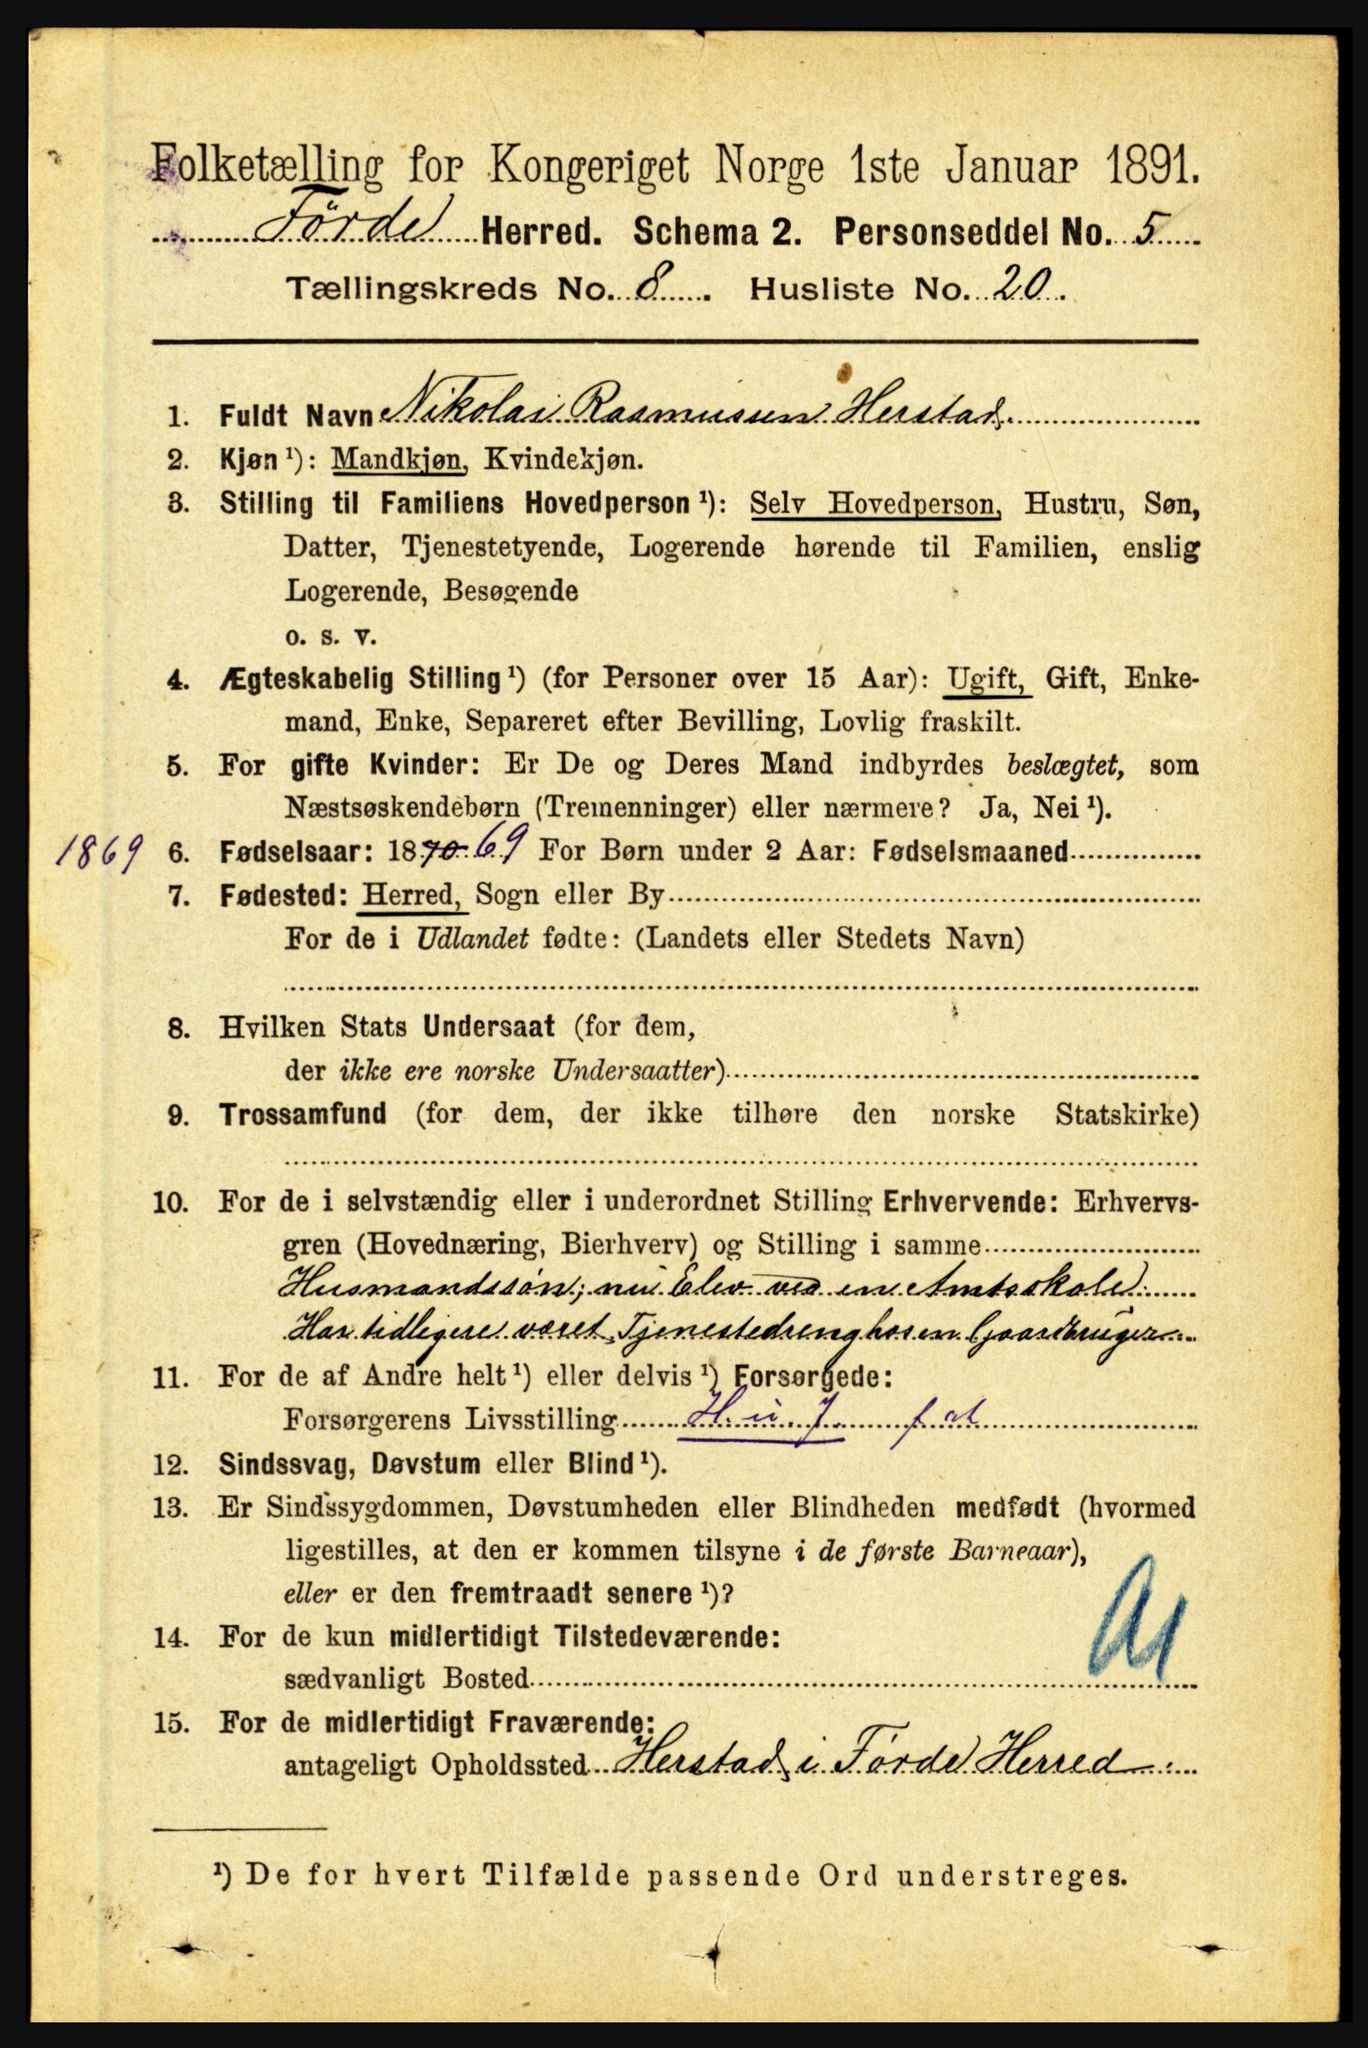 Folketælling for Kongeriget Norge 1ste Januar 1891.
Förde Herred. Schema 2. Personseddel No. 5
Tællingskreds No. 8. Husliste No. 20.
1. Fuldt Navn Nikolai Rasmussen Herstad.
2. Kjøn ¹): Mandkjøn, Kvindekjøn.
3. Stilling til Familiens Hovedperson ¹): Selv Hovedperson, Hustru, Søn,
Datter, Tjenestetyende, Logerende hørende til Familien, enslig
Logerende, Besøgende
o. s. v.
4. Ægteskabelig Stilling ¹) (for Personer over 15 Aar): Ugift, Gift, Enke-
mand, Enke, Separeret efter Bevilling, Lovlig fraskilt.
5. For gifte Kvinder: Er De og Deres Mand indbyrdes beslægtet, som
Næstsøskendebørn (Tremenninger) eller nærmere? Ja, Nei ¹).
1869 6. Fødselsaar: 1870 69 For Børn under 2 Aar: Fødselsmaaned
7. Fødested: Herred, Sogn eller By
For de i Udlandet fødte: (Landets eller Stedets Navn)
8. Hvilken Stats Undersaat (for dem,
der ikke ere norske Undersaatter)
9. Trossamfund (for dem, der ikke tilhøre den norske Statskirke)
10. For de i selvstændig eller i underordnet Stilling Erhvervende: Erhvervs-
gren (Hovednæring, Bierhverv) og Stilling i samme
Husmandssön; nu Elev ved en Amtsskole.
Har tidligere været Tjenestedreng hos en Gaardbruger.
11. For de af Andre helt ¹) eller delvis ¹) Forsørgede:
Forsørgerens Livsstilling H. u. J.
12. Sindssvag, Døvstum eller Blind ¹).
13. Er Sindssygdommen, Døvstumheden eller Blindheden medfødt (hvormed
ligestilles, at den er kommen tilsyne i de første Barneaar),
eller er den fremtraadt senere ¹)?
14. For de kun midlertidigt Tilstedeværende:
sædvanligt Bosted
15. For de midlertidigt Fraværende:
antageligt Opholdssted Herstad, i Førde Herred.
¹) De for hvert Tilfælde passende Ord understreges.